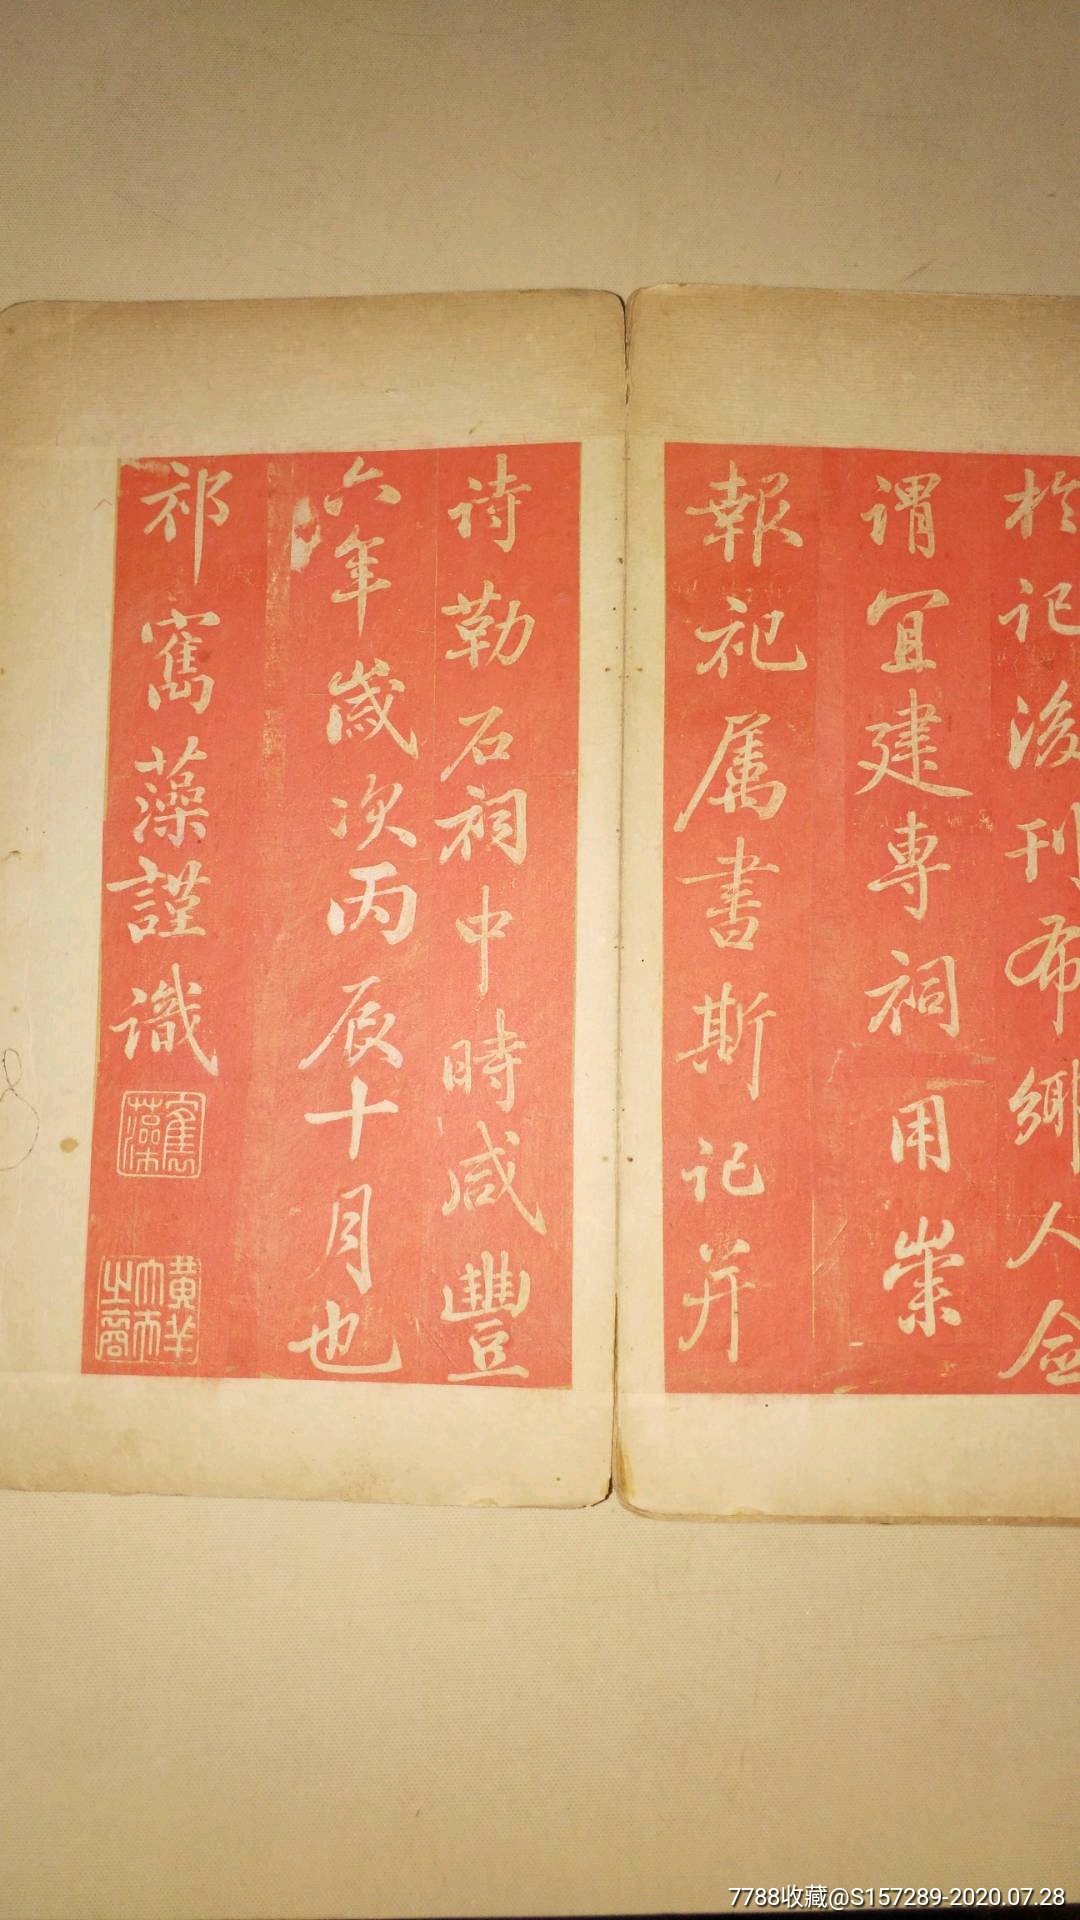 於記後刊布鄉人僉
謂宜建專祠用崇
報祀属書斯記并
詩勒石祠中時咸豐
六年歲次丙辰十月也
祁寯藻謹識
寯藻
7788收藏@S157289-2020.07.28